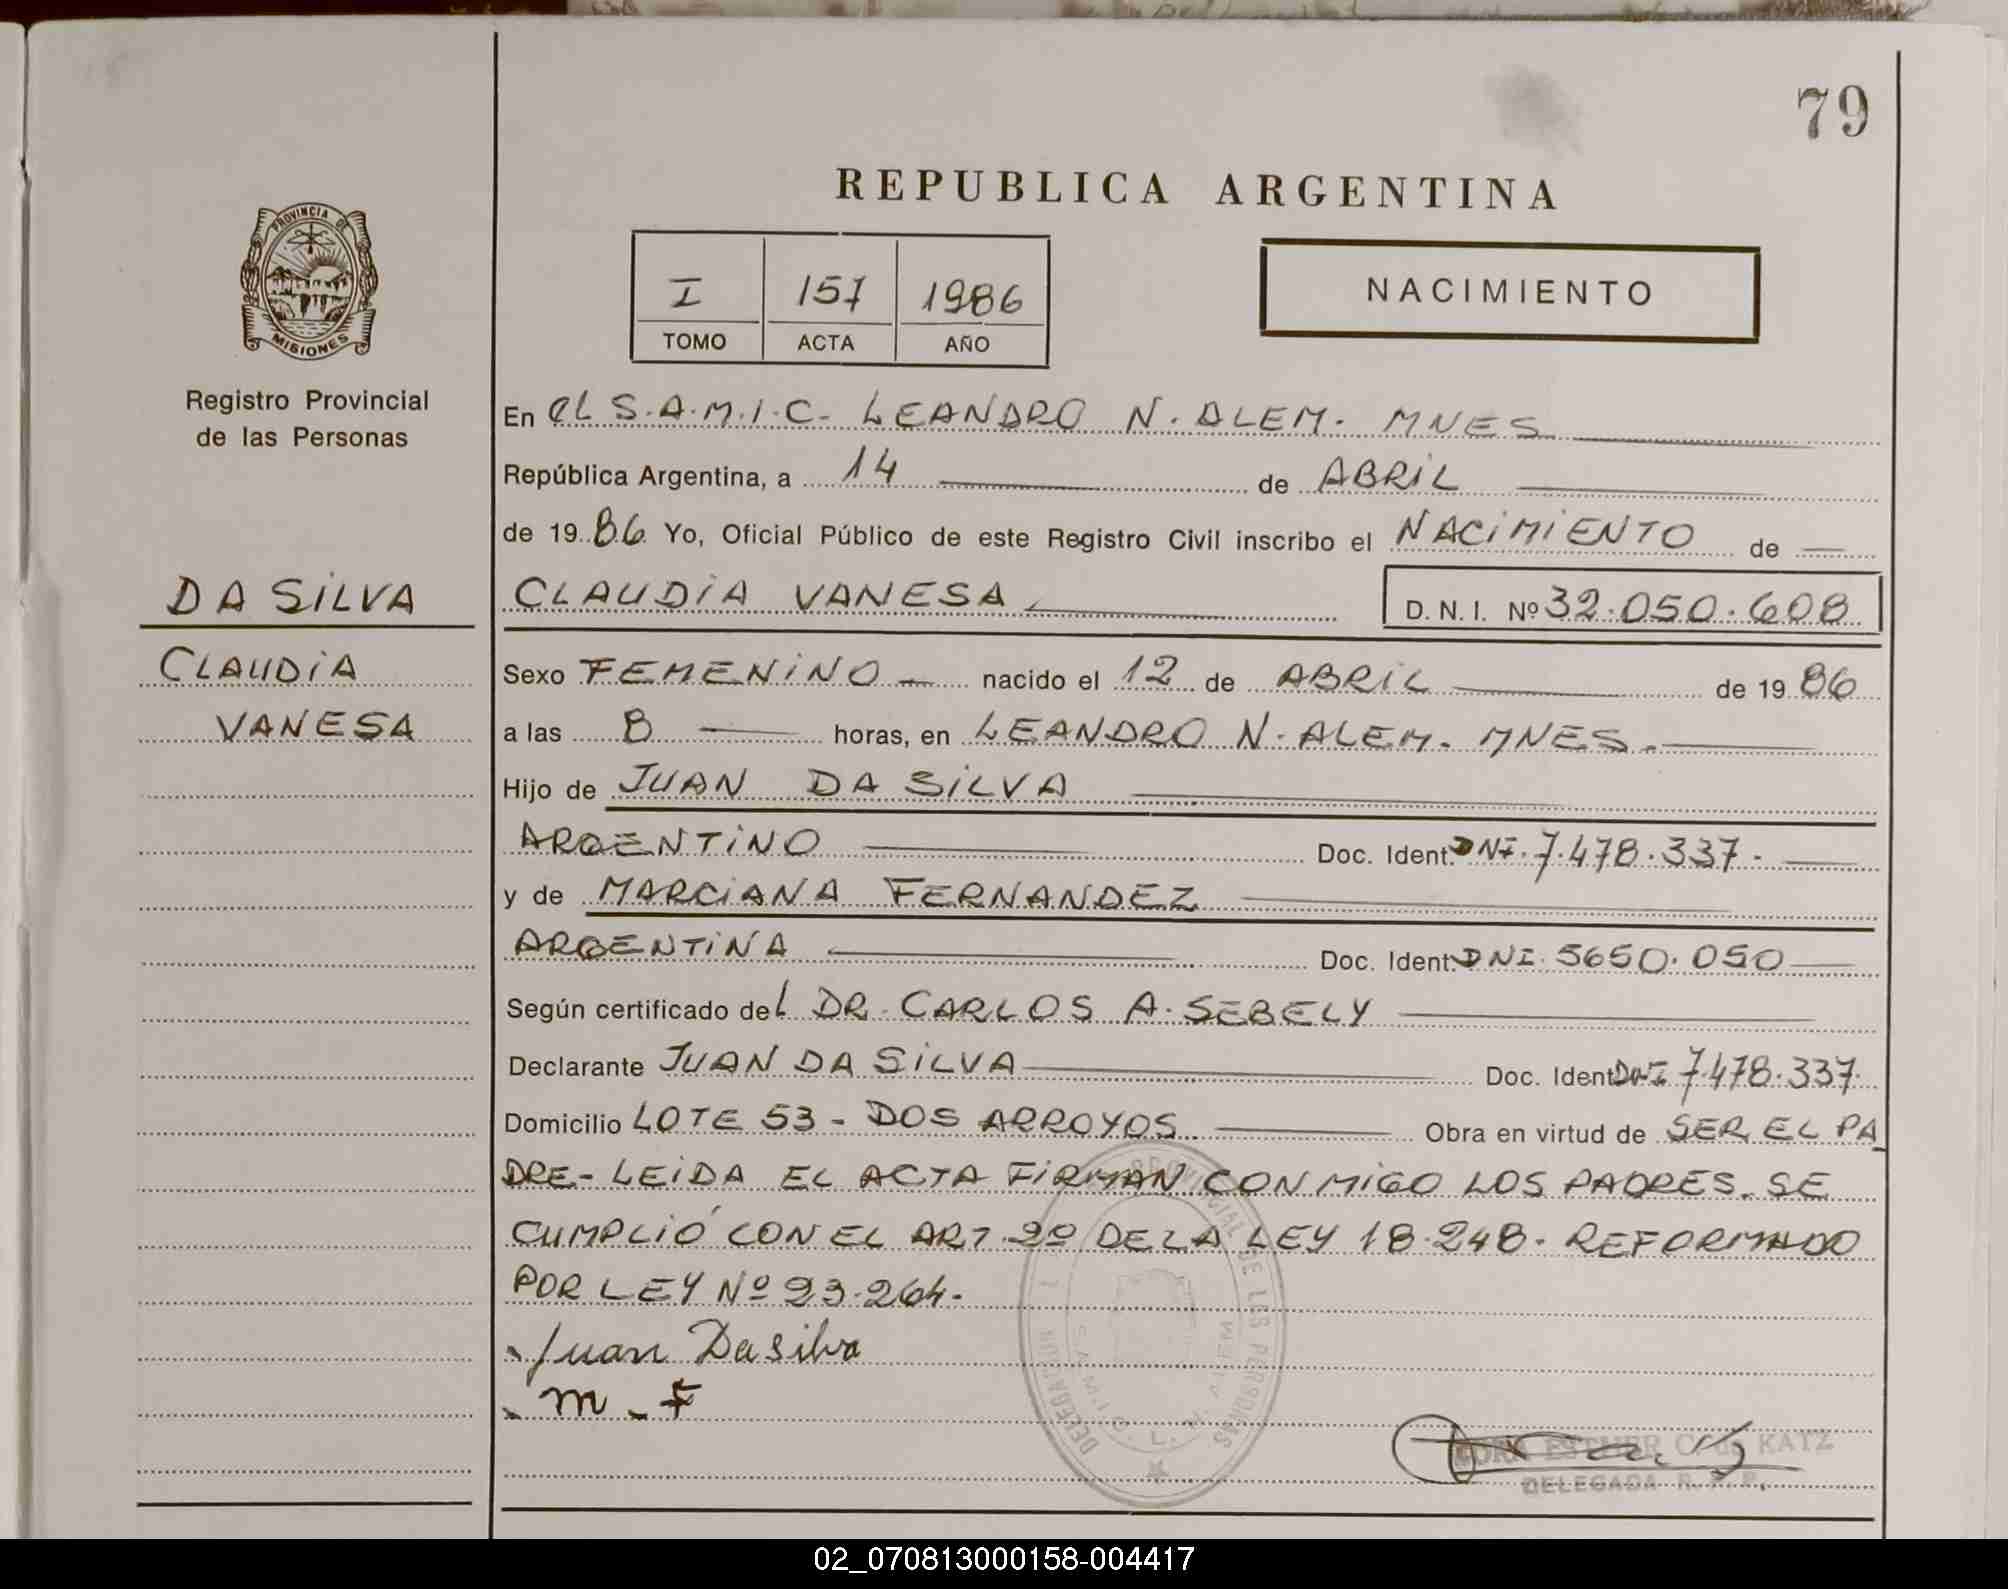 79
REPUBLICA ARGENTINA
PROVINCIA DE
MISIONES
Registro Provincial
de las Personas
I 157 1986
TOMO ACTA AÑO
NACIMIENTO
En el S.A.M.I.C. LEANDRO N. ALEM. MNES
República Argentina, a 14 de ABRIL
de 1986 Yo, Oficial Público de este Registro Civil inscribo el NACIMIENTO de
DA SILVA
CLAUDIA
VANESA
CLAUDIA VANESA D.N.I. Nº 32.050.608
Sexo FEMENINO nacido el 12 de ABRIL de 1986
a las 8 horas, en LEANDRO N. ALEM. MNES.
Hijo de JUAN DA SILVA
ARGENTINO Doc. Ident. DNI. 7.478.337.
y de MARCIANA FERNANDEZ
ARGENTINA Doc. Ident. DNI. 5650.050
Según certificado del DR. CARLOS A. SEBELY
Declarante JUAN DA SILVA Doc. Ident. DNI 7.478.337.
Domicilio LOTE 53 - DOS ARROYOS Obra en virtud de SER EL PA
DRE- LEIDA EL ACTA FIRMAN CONMIGO LOS PADRES. SE
CUMPLIÓ CON EL ART. 2º DE LA LEY 18.248. REFORMADO
POR LEY Nº 23.264.
Juan Da silva
m. F
PROVINCIAL DE LAS PERSONAS
L. N. ALEM
ESTHER KATZ
DELEGADA R. P. P.
02_070813000158-004417